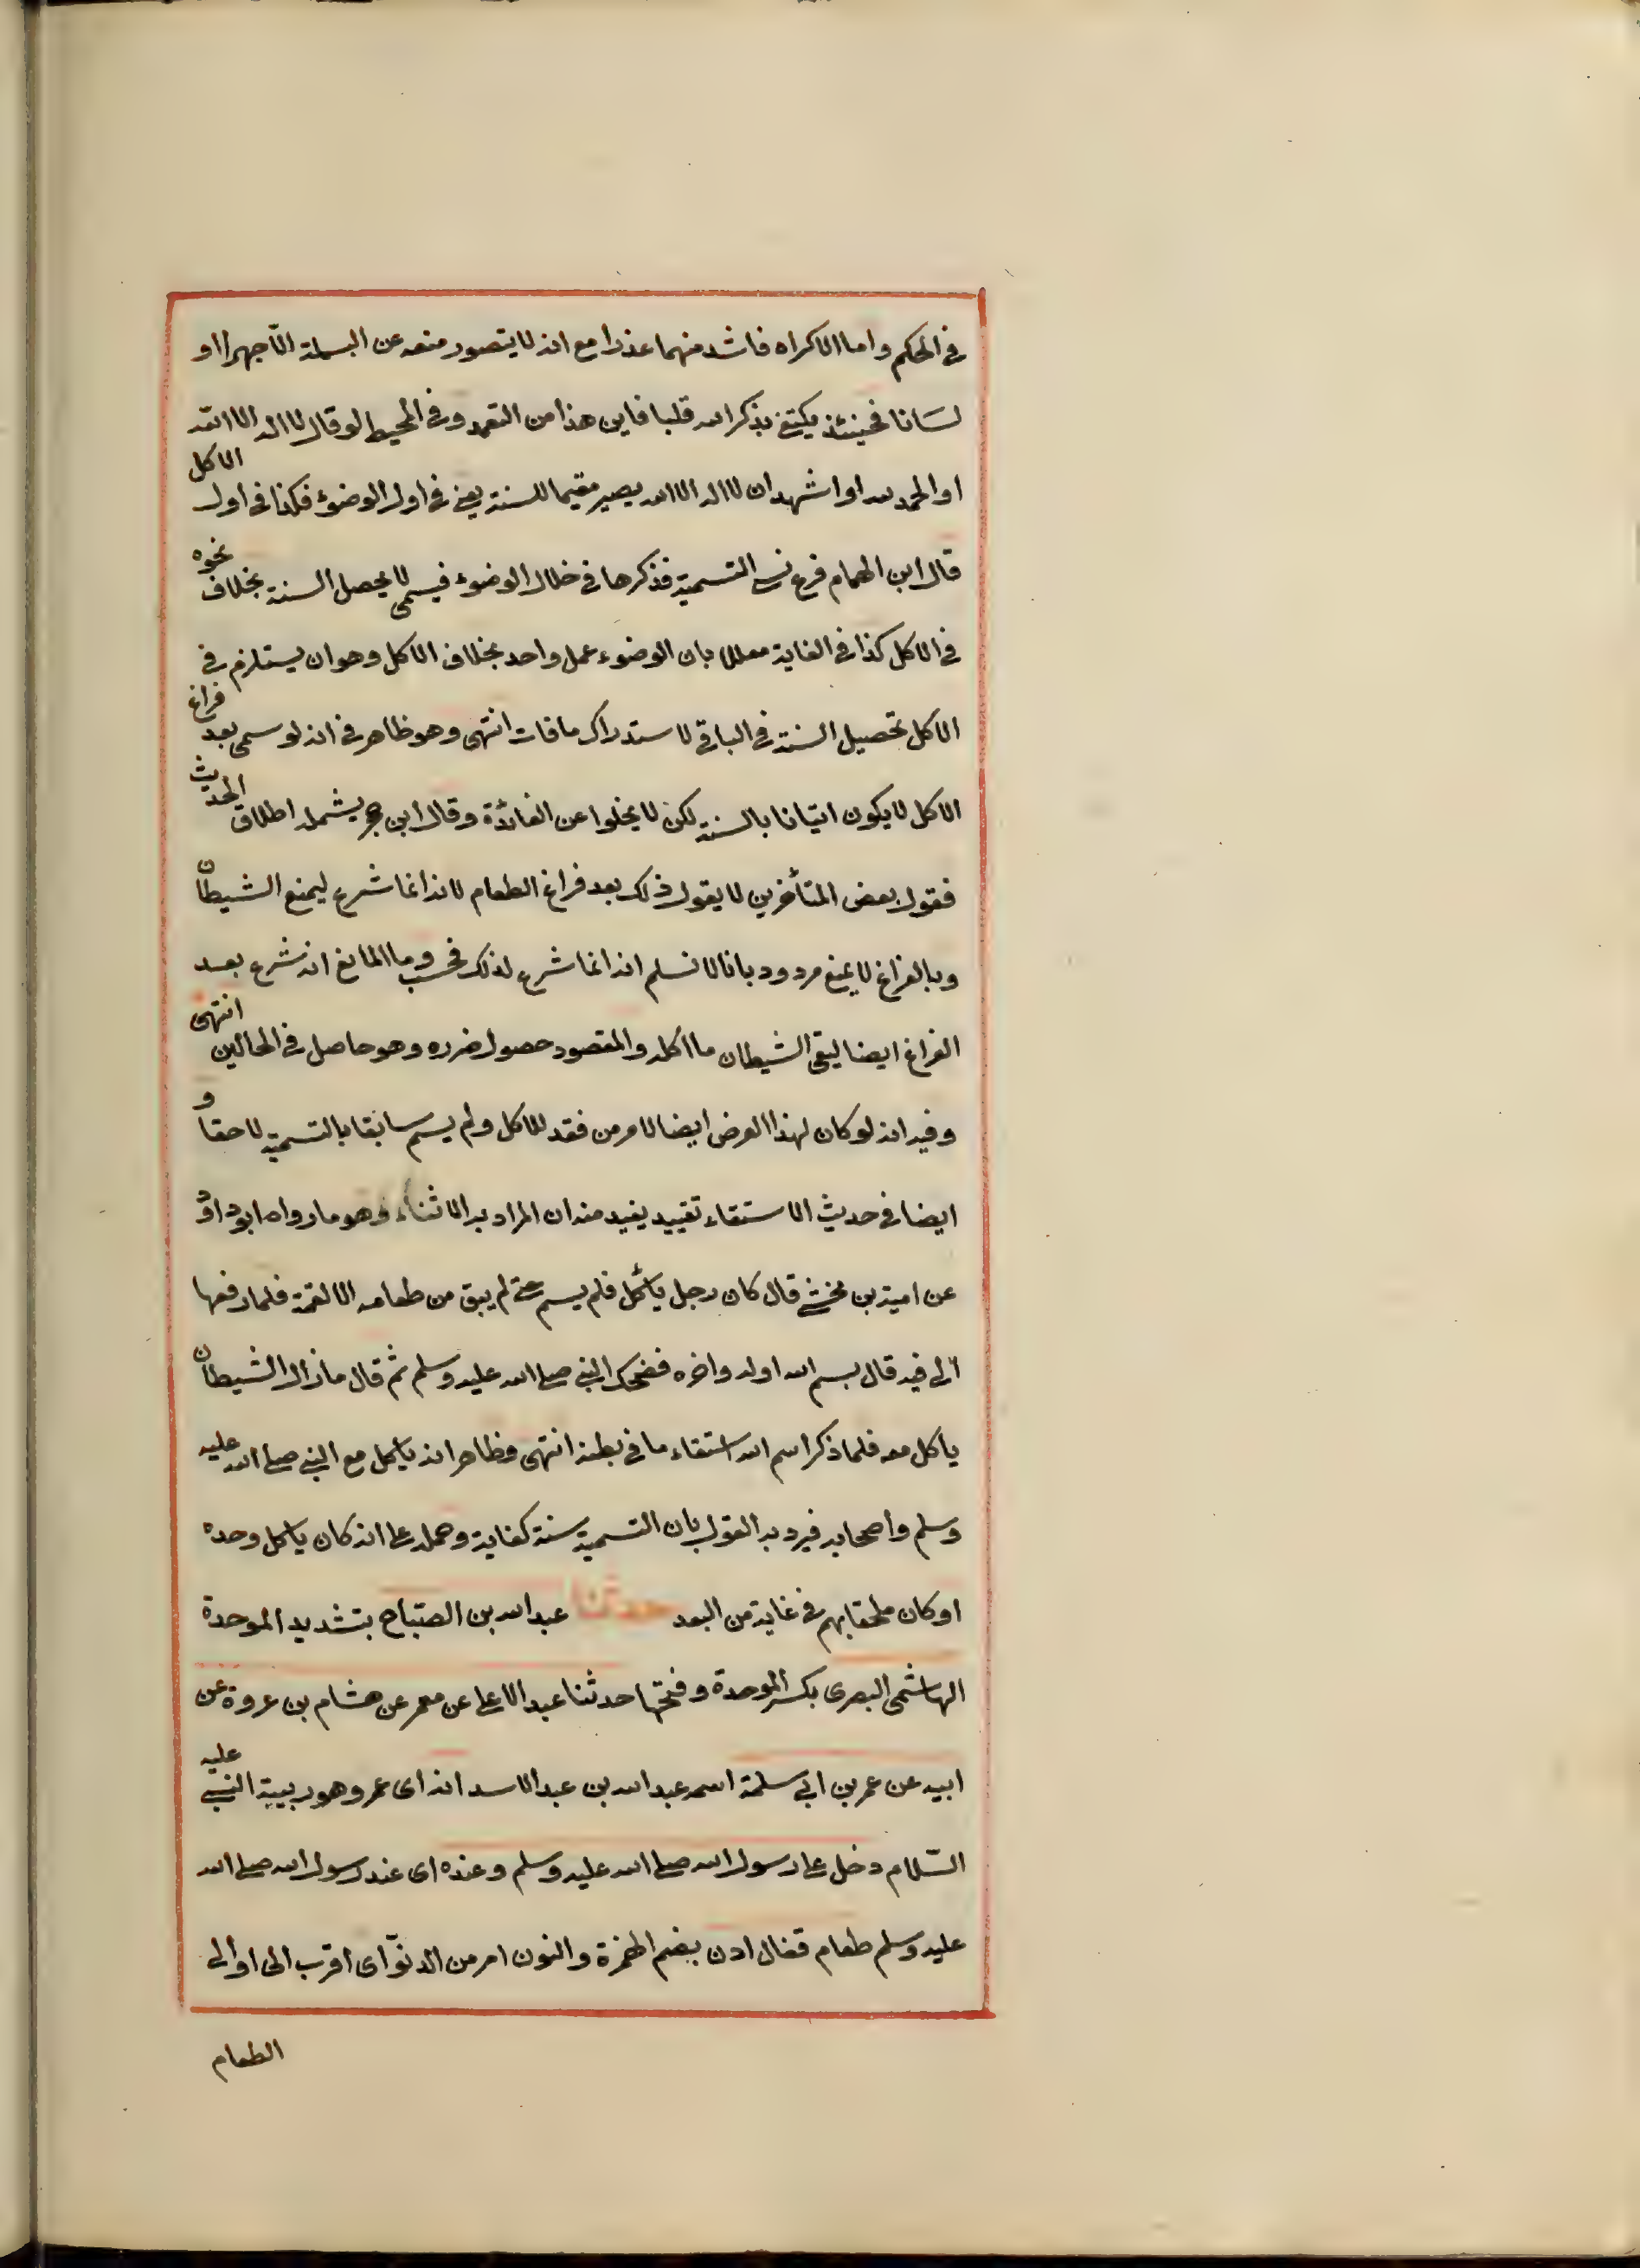 في الحكم واما الاكراه فاشد منهما عذرا مع انه لا يتصور منعه عن البسملة الّا جهرا او
لسَانا فحينئذ يكتفى بذكر الله قلبا فاين هذا من التعمد وفي المحيط لو قال لا اله الا الله
او الحمد لله او اشهد ان لا اله الا الله يصير مقيما للسنة يعني في اول الوضوء فكذا في اول الاكل
قال ابن الهمام فرع نسي التسمية فذكرها في خلال الوضوء فيسمى لا يحصل السنة بخلاف نحوه
في الاكل كذا في الغاية معللا بان الوضوء عمل واحد بخلاف الاكل وهو ان يستلزم في
الاكل تحصيل السنة في الباقي لا ستدراك ما فات انتهى وهو ظاهر في انه لو سمى بعد فراغ
الاكل لا يكون اتيانا بالسنة لكن لا يخلوا عن الفائدة وقال ابن حجر يشمله اطلاق الحديث
فقول بعض المتأخرين لا يقول ذلك بعد فراغ الطعام لانه انما شرع ليمنع الشيطان
وبالفراغ لا يمنع مردود بانا لا نسلم انه انما شرع لذلك فحسب وما المانع انه شرع بعد
الفراغ ايضا ليقئ الشيطان ما اكله والمقصود حصول ضرره وهو حاصل في الحالين انتهى
وفيه انه لو كان لهذا الغرض ايضا لامر من فقد للاكل ولم يسم سابقا بالتسمية لاحقا و
ايضا في حديث الاستقاء تقييد يفيد منه ان المراد به الاثناء وهو ما رواه ابو داود
عن امية بن مخشي قال كان رجل ياكل فلم يسم حتى لم يبق من طعامه الا لقمة فلما رفعها
الى فيه قال بسم الله اوله واخره فضحك النبي صلى الله عليه وسلم ثم قال ما زال الشيطان
ياكل معه فلما ذكر اسم الله استقاء ما في بطنه انتهى وظاهر انه ياكل مع النبي صلى الله عليه
وسلم واصحابه فيرد به القول بان التسمية سنة كفاية وحمله على انه كان ياكل وحده
او كان ملحقا بهم في غاية من البعد حدثنا عبد الله بن الصبّاح بتشديد الموحدة
الهاشمي البصري بكسر الموحدة وفتحها حدثنا عبد الاعلى عن معمر عن هشام بن عروة عن
ابيه عن عمر بن ابي سلمة اسمه عبد الله بن عبد الاسد انه اى عمر وهو ربيبة النبي عليه
السّلام دخل على رسول الله صلى الله عليه وسلم وعنده اى عند رسول الله صلى الله
عليه وسلم طعام فقال ادن بضم الهمزة والنون امر من الدنوّ اى اقرب الى او الى
الطعام